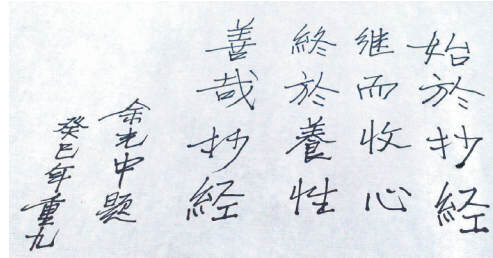 始於抄経
継而收心
終於養性
善哉抄経
余光中題
癸巳年重九